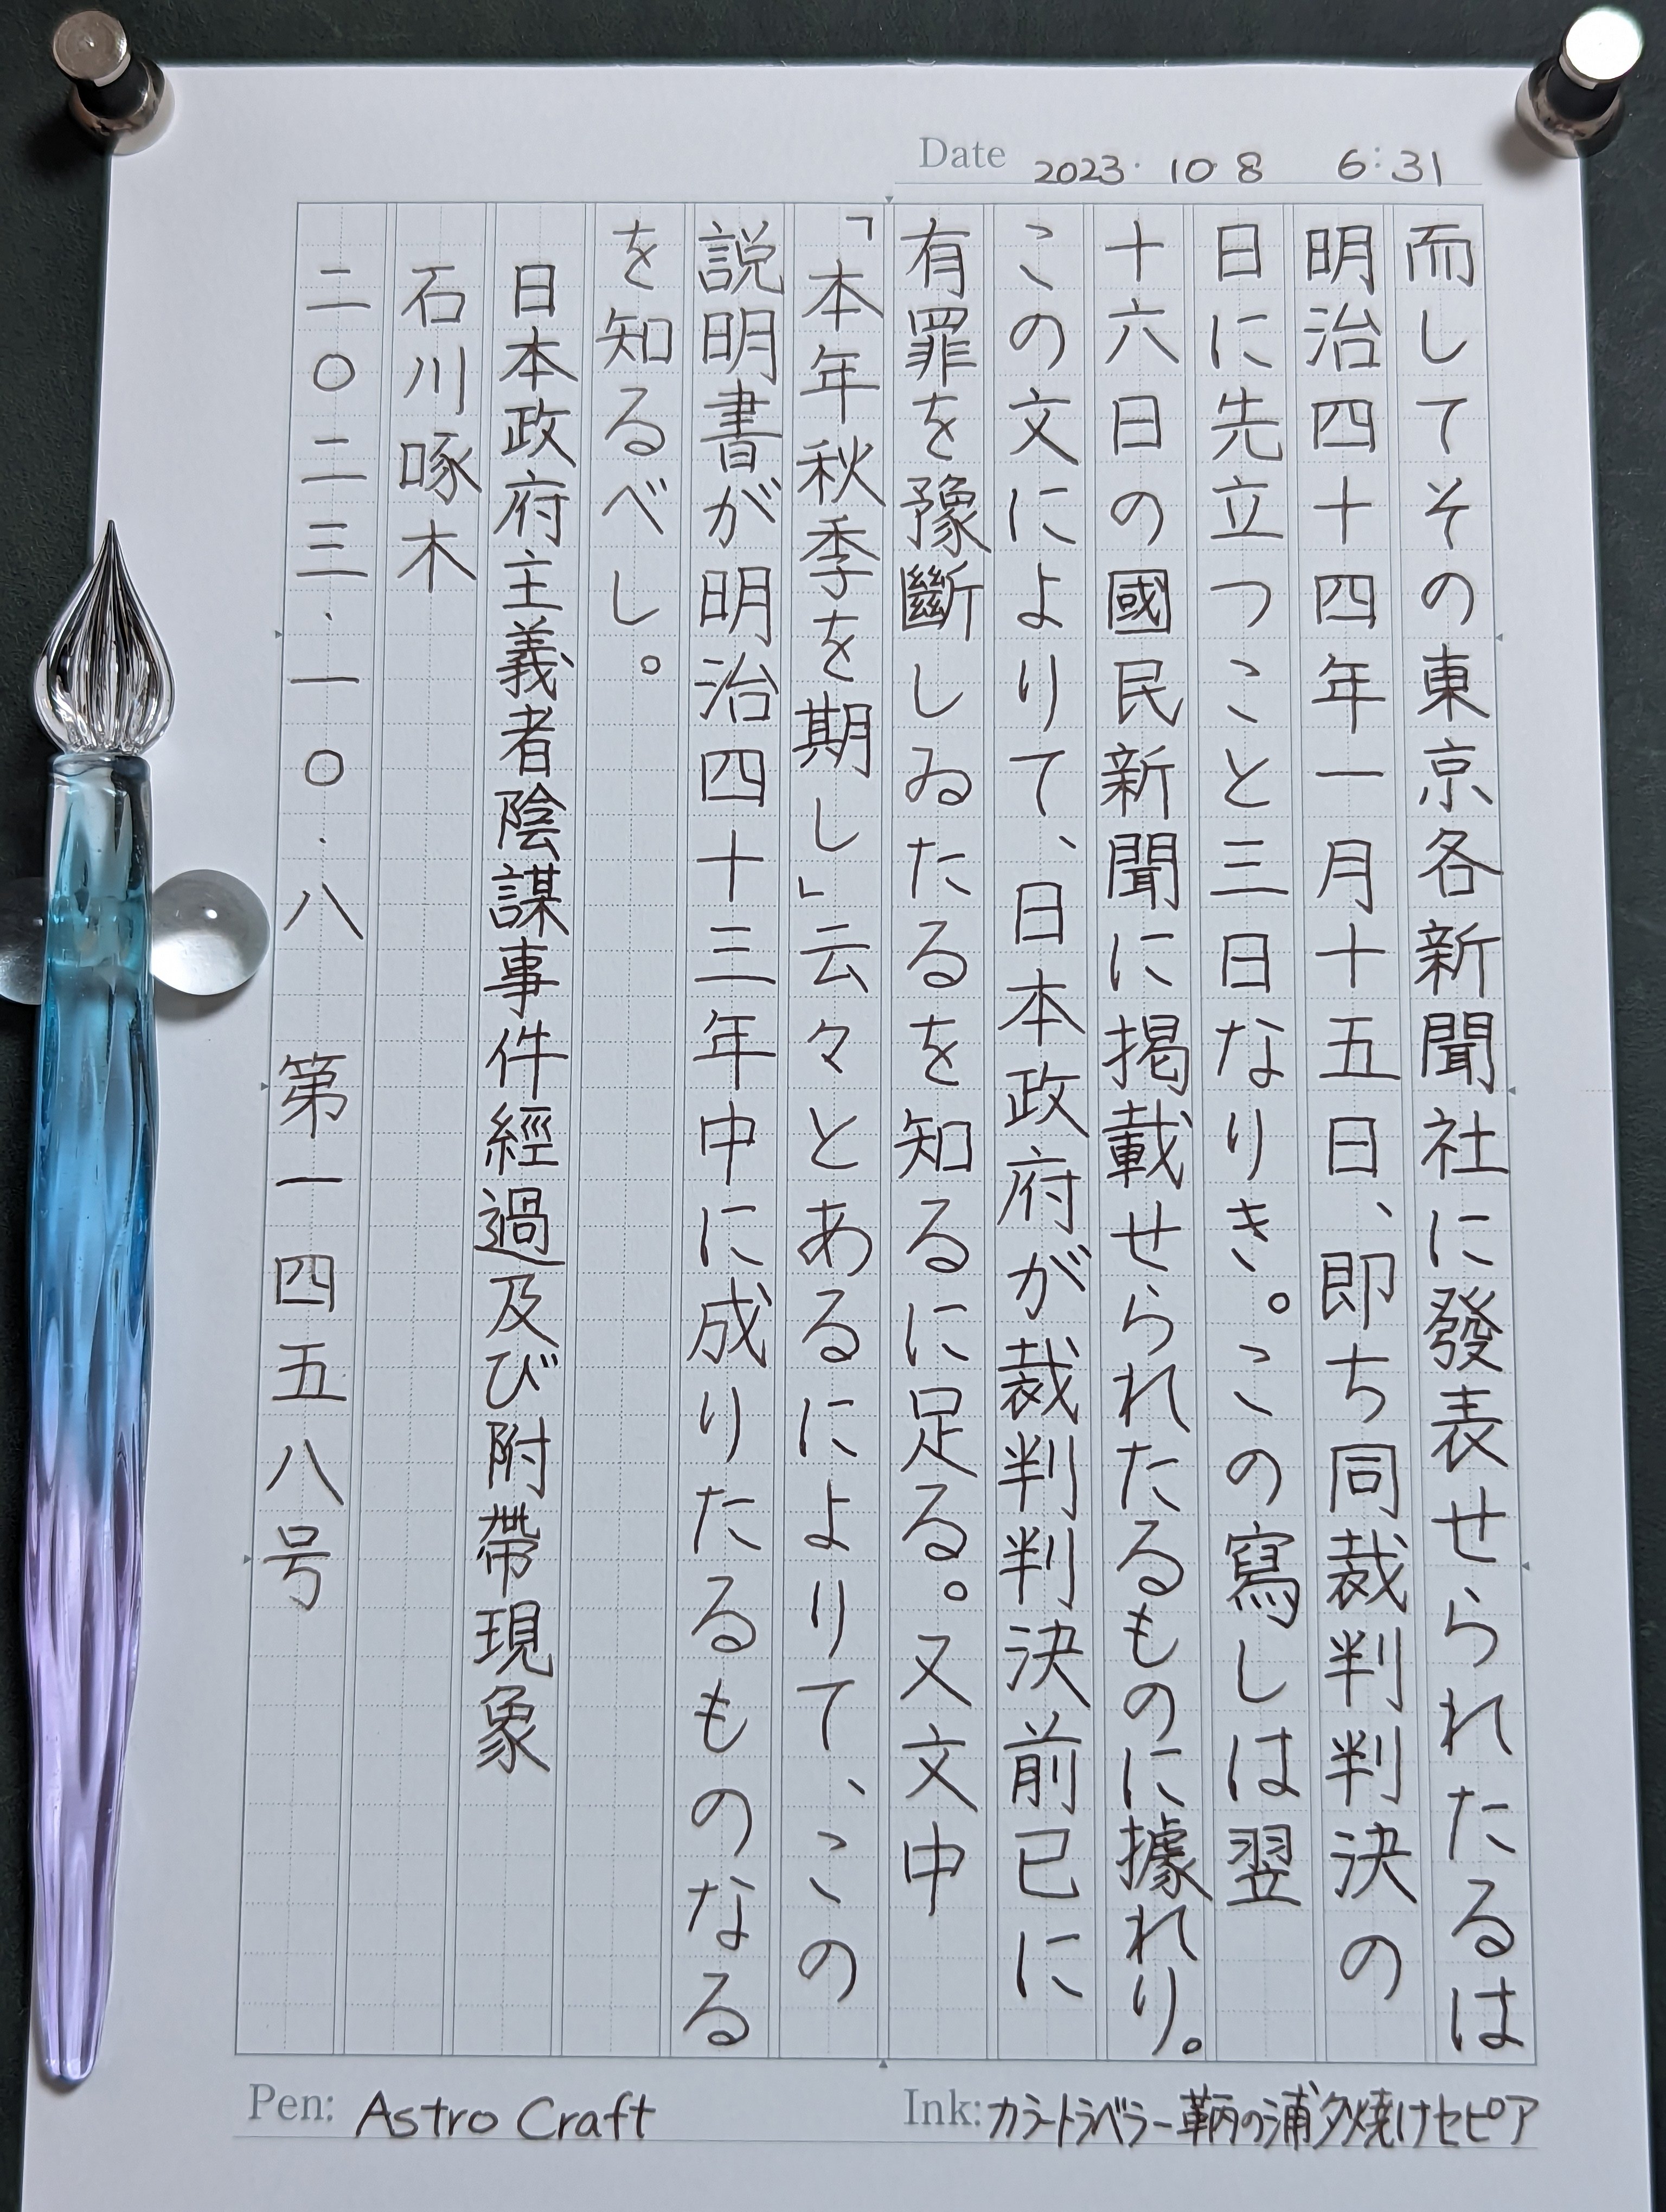 Date 2023. 10. 8 6:31
而してその東京各新聞社に發表せられたるは
明治四十四年一月十五日、即ち同裁判判決の
日に先立つこと三日なりき。この寫しは翌
十六日の國民新聞に掲載せられたるものに據れり。
この文によりて、日本政府が裁判判決前已に
有罪を豫斷しゐたるを知るに足る。又文中
「本年秋季を期し」云々とあるによりて、この
説明書が明治四十三年中に成りたるものなる
を知るべし。
日本政府主義者陰謀事件經過及び附帶現象
石川啄木
二〇二三.一〇.八 第一四五八号
Pen: Astro Craft
Ink: カラートラベラー鞆の浦夕焼けセピア